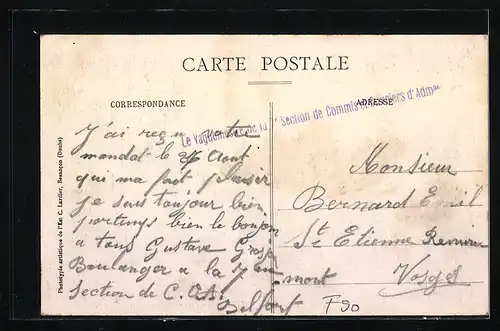 CARTE POSTALE
CORRESPONDANCE
ADRESSE
Le Vaguemestre de la Section de Commis et Ouvriers d'Adm.on
J'ai reçu votre
mandat le 27 Aout
qui ma fait plaisir
je suis toujour bien
portemps bien le bonjour
a tous Gustave
Boulanger a la 7em
Section de C.O.A.
Belfort
Monsieur
Bernard Emil
St Etienne Remire
mont
Vosges
F50
Phototypie artistique de l'Est C. Lardier, Besançon (Doubs)